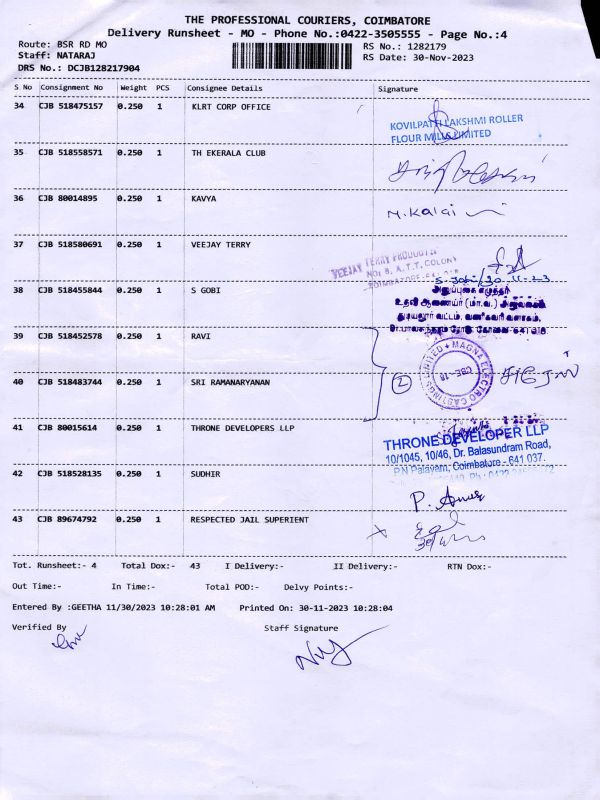 THE PROFESSIONAL COURIERS, COIMBATORE
Delivery Runsheet - MO - Phone No.:0422-3505555 - Page No.:4
Route: BSR RD MO RS No.: 1282179
Staff: NATARAJ RS Date: 30-Nov-2023
DRS No.: DCJB128217904
S No Consignment No Weight PCS Consignee Details Signature
34 CJB 518475157 0.250 1 KLRT CORP OFFICE
KOVILPATTI LAKSHMI ROLLER
FLOUR MILLS LIMITED
35 CJB 518558571 0.250 1 TH EKERALA CLUB
36 CJB 80014895 0.250 1 KAVYA
M.Kalai
37 CJB 518580691 0.250 1 VEEJAY TERRY
VEEJAY TERRY PRODUCTS
NO: 8, A.T.T. COLONY
38 CJB 518455844 0.250 1 S GOBI
39 CJB 518452578 0.250 1 RAVI
MAGNA ELECTRO CASTINGS LIMITED
CBE-18
40 CJB 518483744 0.250 1 SRI RAMANARYANAN
2
41 CJB 80015614 1 THRONE DEVELOPERS LLP
0.250
THRONE DEVELOPER LLP
10/1045, 10/46, Dr. Balasundram Road,
P.N Palayam, Coimbatore - 641 037.
42 CJB 518528135 0.250 1 SUDHIR
43 CJB 89674792 0.250 1 RESPECTED JAIL SUPERIENT
Tot. Runsheet:- 4 Total Dox:- 43 I Delivery:- II Delivery:- RTN Dox:-
Out Time:- In Time:- Total POD:- Delvy Points:-
Entered By :GEETHA 11/30/2023 10:28:01 AM Printed On: 30-11-2023 10:28:04
Verified By Staff Signature